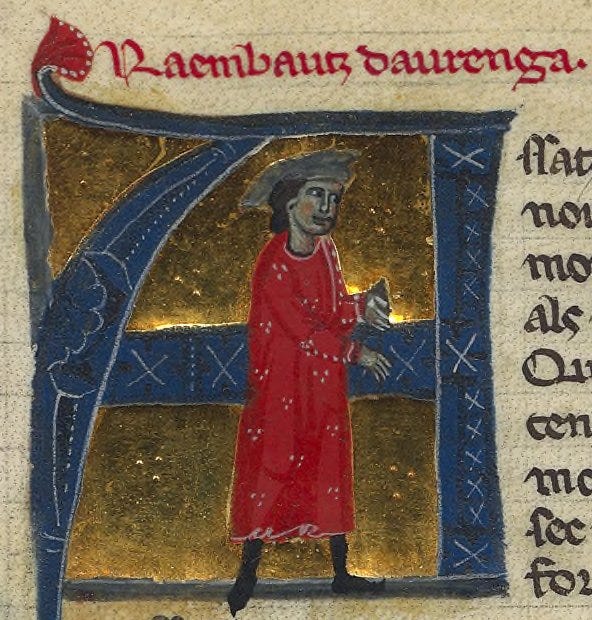 Raembautz daurenga.
A
ssat
non
mo
als
Qu
ten
mo
sec
for